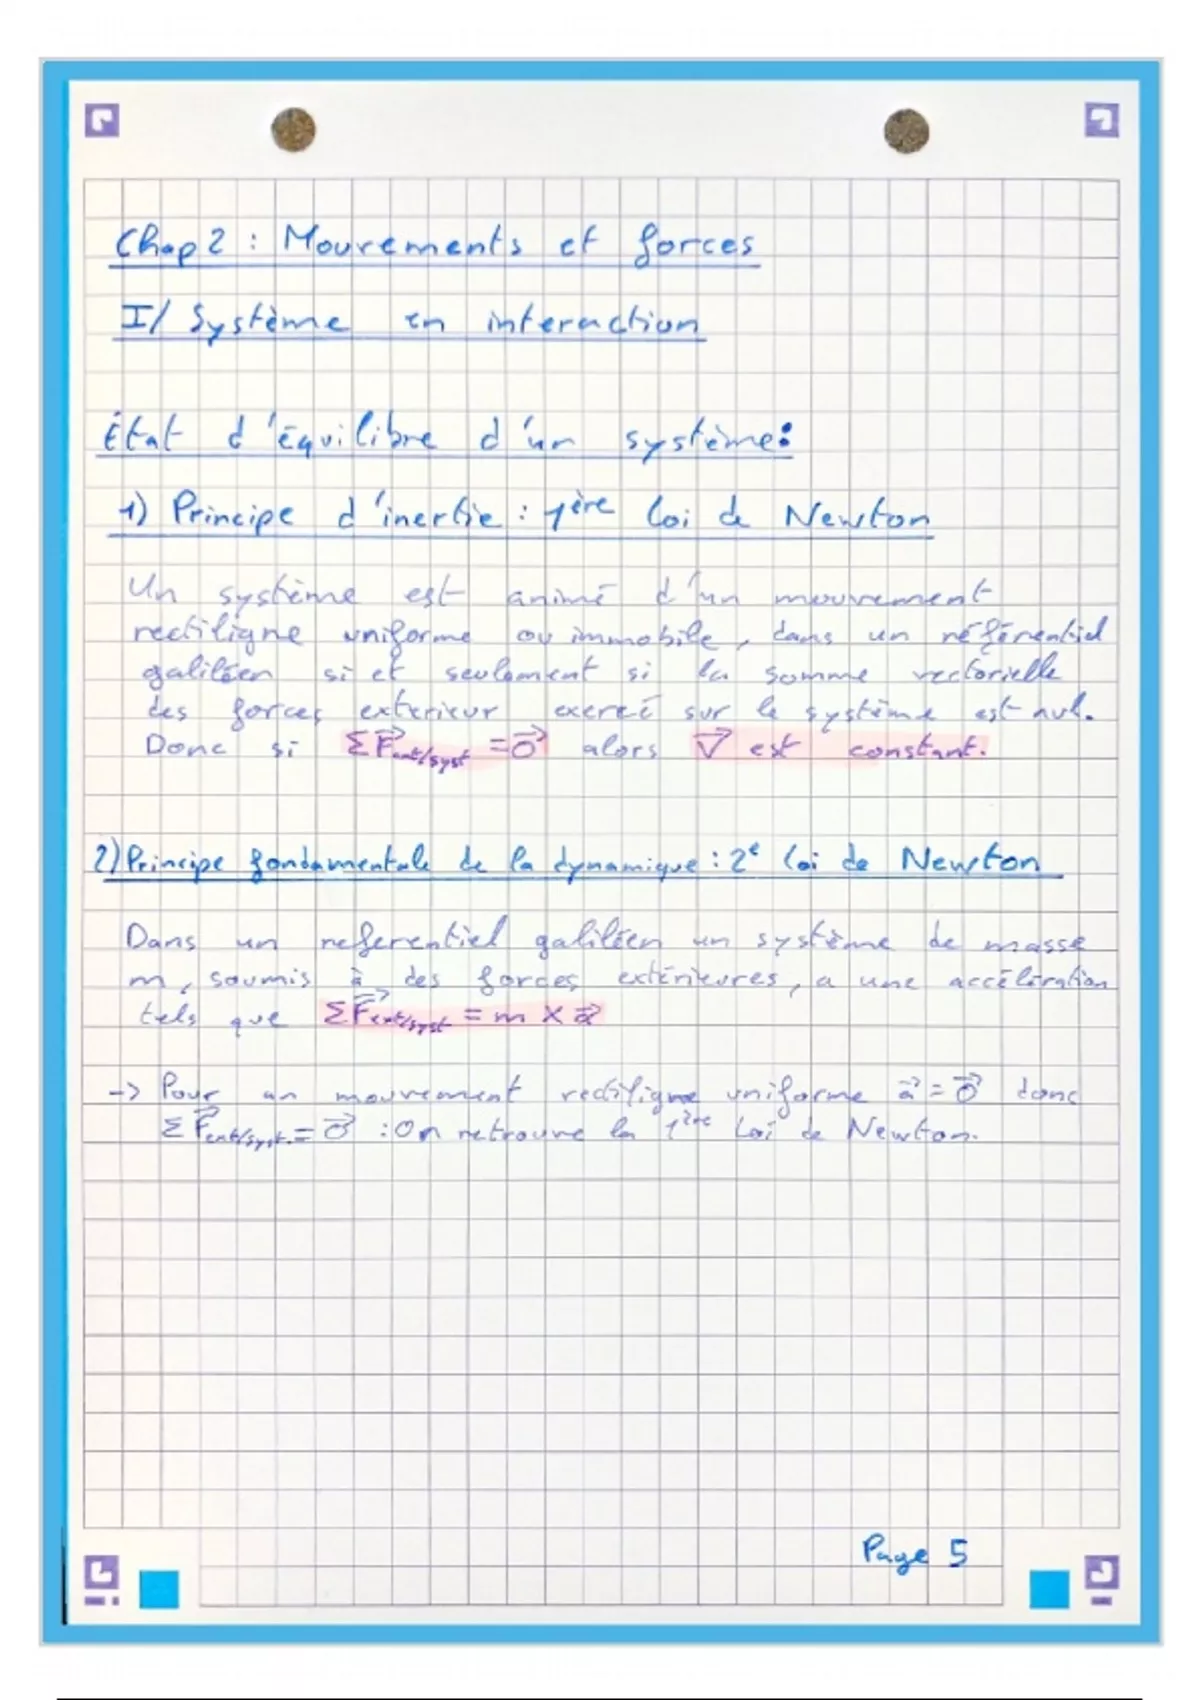 Chap 2 : Mouvements et forces
I/ Système en interaction
État d'équilibre d'un système:
1) Principe d'inertie : 1ère loi de Newton
Un système est animé d'un mouvement
rectiligne uniforme ou immobile, dans un référentiel
galiléen si et seulement si la somme vectorielle
des forces exterieur exercé sur le système est nul.
Donc si ΣF⃗ext/syst = 0⃗ alors V⃗ est constant.
2) Principe fondamentale de la dynamique : 2e loi de Newton
Dans un referentiel galiléen un système de masse
m, soumis à des forces extérieures, a une accélération
tels que ΣF⃗ext/syst = m × a⃗
-> Pour un mouvement rectiligne uniforme a⃗ = 0⃗ donc
ΣF⃗ext/syst. = 0⃗ : On retrouve la 1ère Loi de Newton.
Page 5